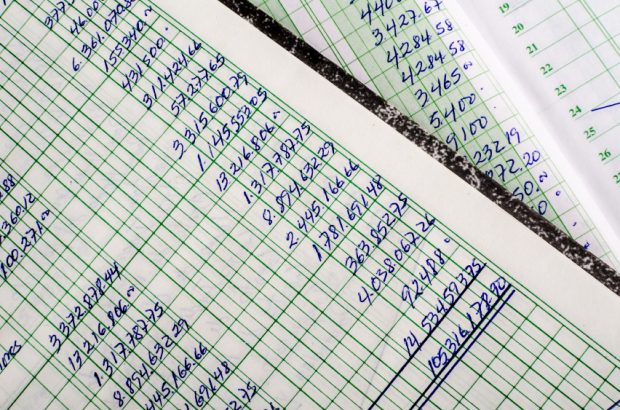 46.00
6.361.070.8
155340.~
431500.
311424.66
57.277.65
3.315.600.79
1.145.553.05
13.216.806.~
1.317.787.75
8.894.632.29
2.445.166.66
1.781.691.48
363.852.75
4.038.067.26
92488.
14.534.593.75
105.316.178.30
88
360.12
100.271.~
3.372.878.44
13.216.806.~
1.317.787.75
8.894.632.29
445.166.66
691.48
.75
440
3427.67
4284.58
4284.58
3465.~
5.400.
9100.
232.19
072.20
50.~
0.
19
20
21
22
23
24
25